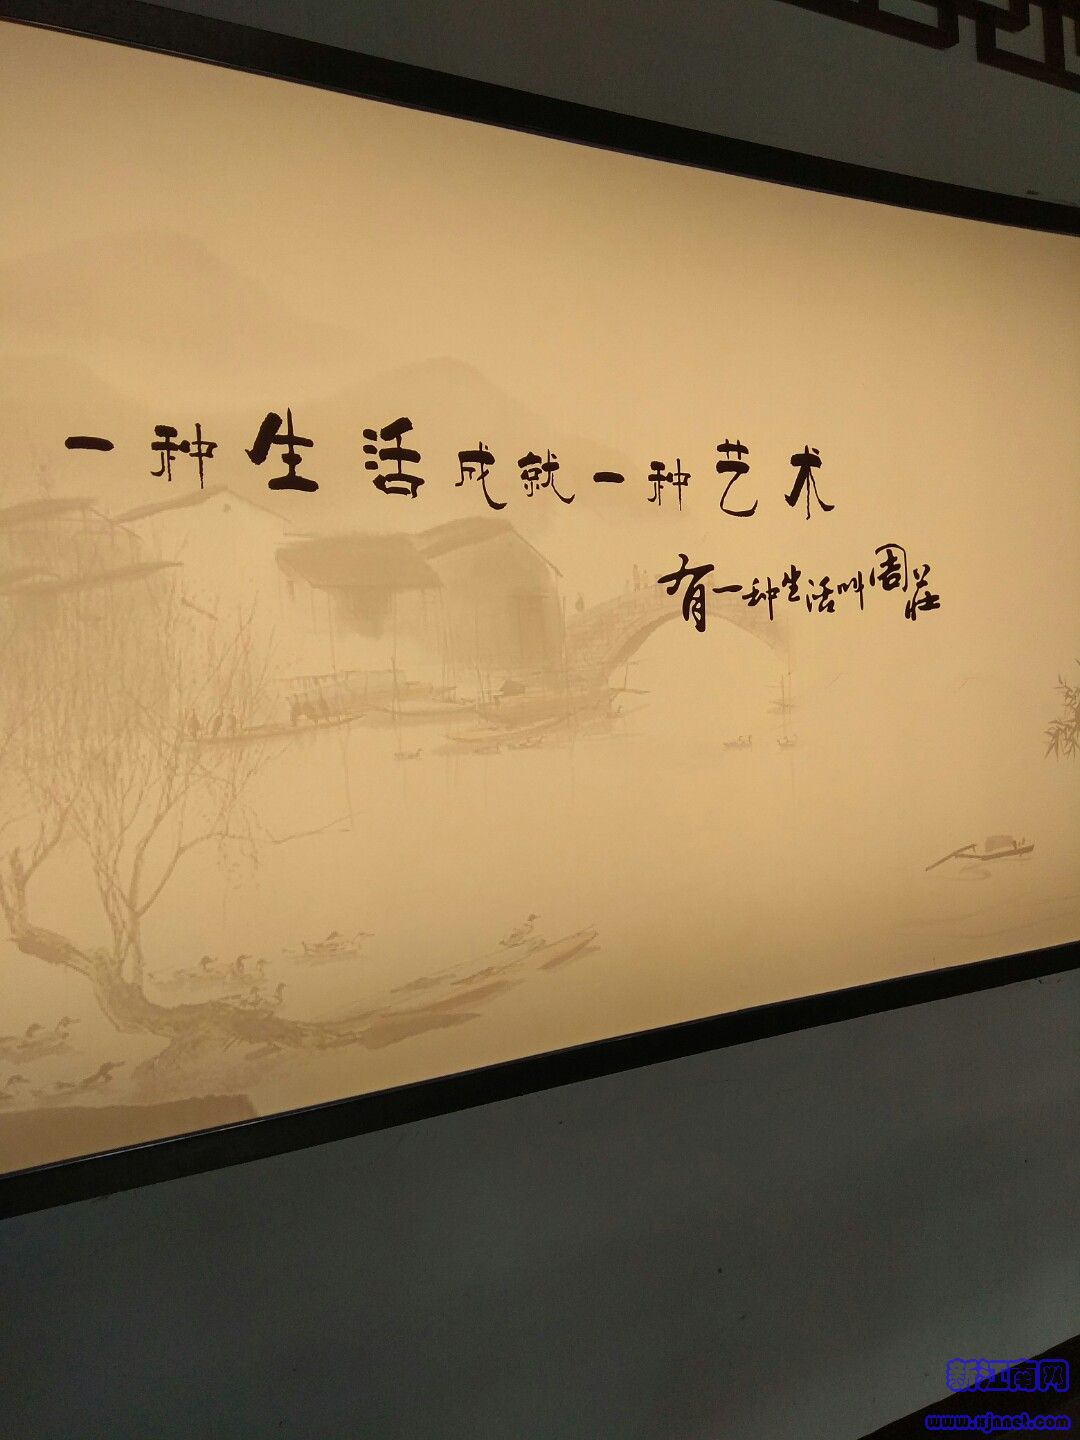 一种生活成就一种艺术
有一种生活叫周莊
新江南网
www.xjnnet.com